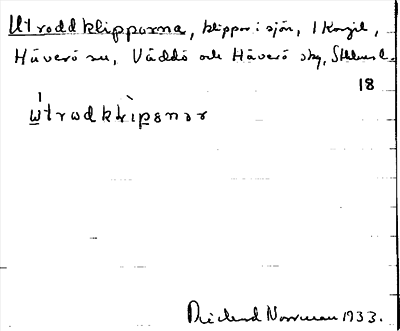 Utroddklipporna, klippor i sjön, 1 Kongl,
Häverö sn, Väddö och Häverö skg, Sthlms l.
18
ẁtrωdklìpənər
Richard Norrman 1933.